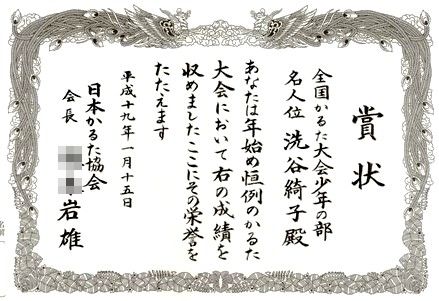 賞状
全国かるた大会少年の部
名人位 洗谷綺子殿
あなたは年始め恒例のかるた
大会において右の成績を
収めましたここにその栄誉を
たたえます
平成十九年一月十五日
日本かるた協会
会長 岩雄